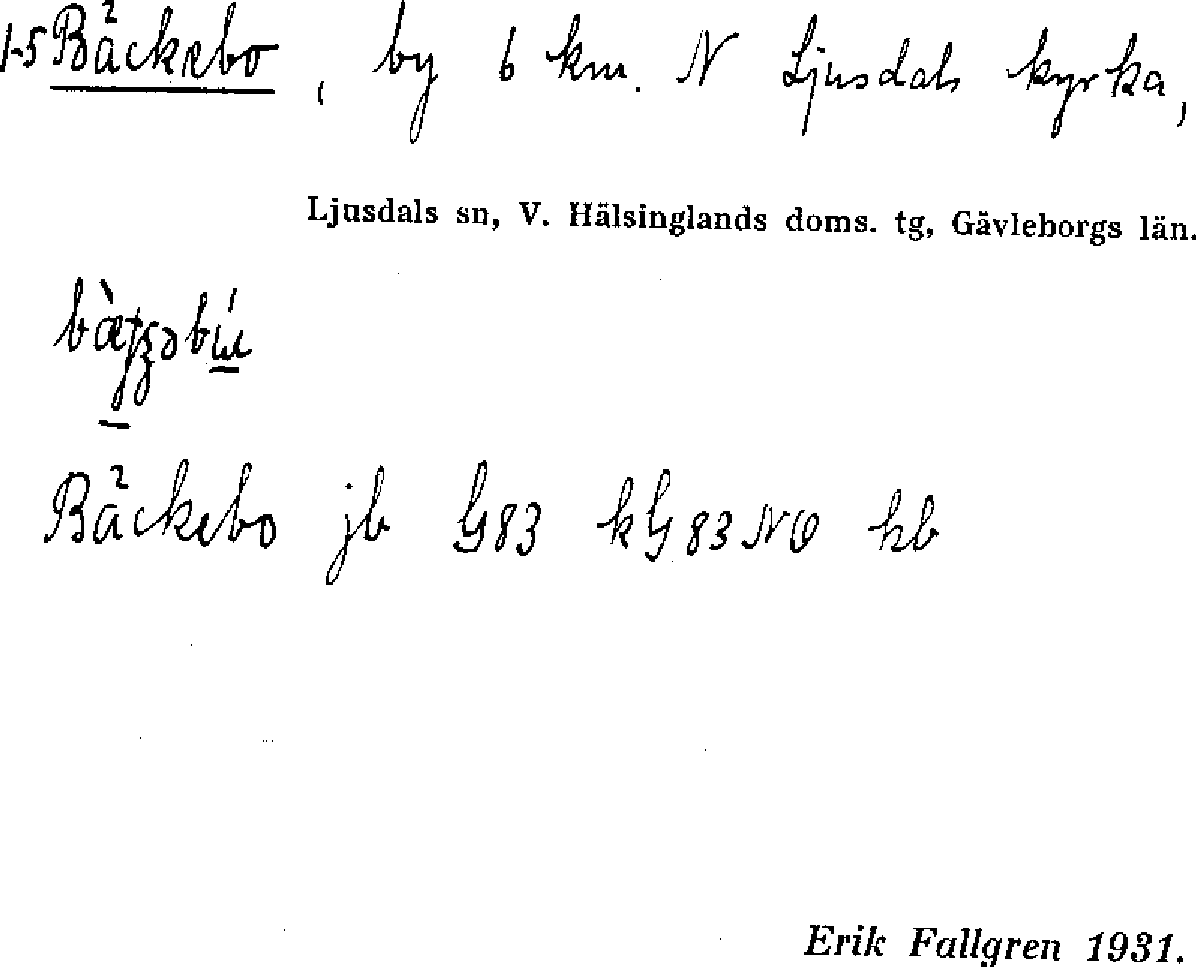 1-5 Bäckebo, by 6 km. N Ljusdals kyrka,
Ljusdals sn, V. Hälsinglands doms. tg, Gävleborgs län.
Bäckebo jb G83 kG83NO hb
Erik Fallgren 1931.